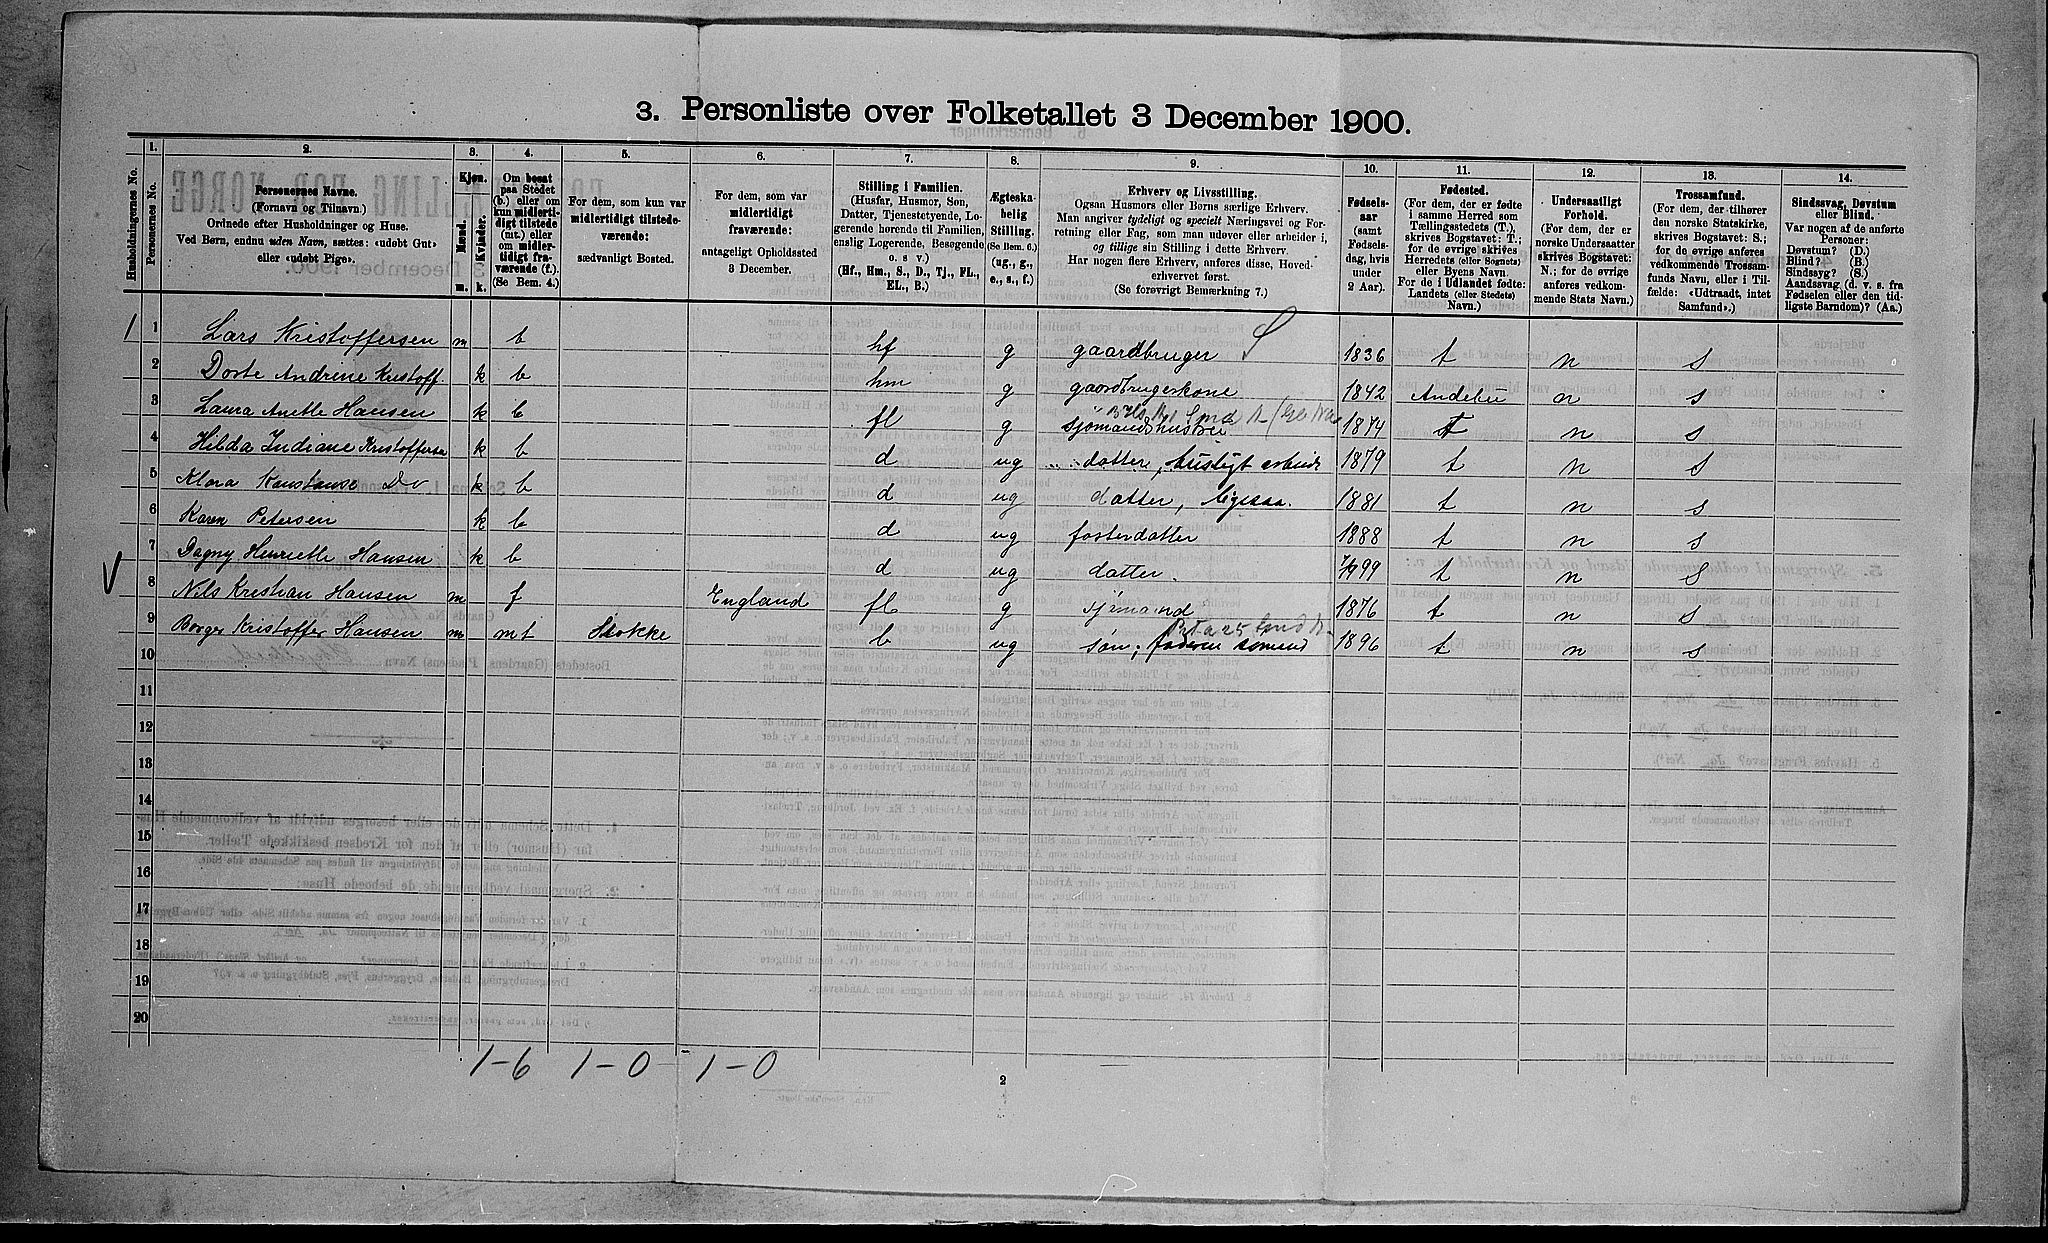 3. Personliste over Folketallet 3 December 1900.
Husholdningernes No.
1. Personernes No.
2. Personernes Navne. (Fornavn og Tilnavn.) Ordnede efter Husholdninger og Huse. Ved Børn, endnu uden Navn, sættes: «udøbt Gut» eller «udøbt Pige».
3. Kjøn. Mænd. m. Kvinder. k.
4. Om bosat paa Stedet (b.) eller om kun midlertidigt tilstede (mt.) eller om midlertidigt fraværende (f.). (Se Bem. 4.)
5. For dem, som kun var midlertidigt tilstedeværende: sædvanligt Bosted.
6. For dem, som var midlertidigt fraværende: antageligt Opholdssted 3 December.
7. Stilling i Familien. (Husfar, Husmor, Søn, Datter, Tjenestetyende, Logerende hørende til Familien, enslig Logerende, Besøgende o. s. v.) (Hf., Hm., S., D., Tj., FL., EL., B.)
8. Ægteskabelig Stilling. (Se Bem. 6.) (ug., g., e., s., f.)
9. Erhverv og Livsstilling. Ogsaa Husmors eller Børns særlige Erhverv. Man angiver tydeligt og specielt Næringsvei og Forretning eller Fag, som man udøver eller arbeider i, og tillige sin Stilling i dette Erhverv. Har nogen flere Erhverv, anføres disse, Hovederhvervet først. (Se forøvrigt Bemærkning 7.)
10. Fødselsaar (samt Fødselsdag, hvis under 2 Aar).
11. Fødested. (For dem, der er fødte i samme Herred som Tællingsstedets (T.), skrives Bogstavet: T.; for de øvrige skrives Herredets (eller Sognets) eller Byens Navn. For de i Udlandet fødte: Landets (eller Stedets) Navn.)
12. Undersaatligt Forhold. (For dem, der er norske Undersaatter skrives Bogstavet: N.; for de øvrige anføres vedkommende Stats Navn.)
13. Trossamfund. (For dem, der tilhører den norske Statskirke, skrives Bogstavet: S.; for de øvrige anføres vedkommende Trossamfunds Navn, eller i Tilfælde: «Udtraadt, intet Samfund».)
14. Sindssvag, Døvstum eller Blind. Var nogen af de anførte Personer: Døvstum? (D.) Blind? (B.) Sindssyg? (S.) Aandssvag (d. v. s. fra Fødselen eller den tidligste Barndom)? (Aa.)
1 1 Lars Kristoffersen m b hf g gaardbruger 1836 t n s
2 Dorte Andrine Kristoff. k b hm g gaardbrugerkone 1842 Andebu n s
3 Laura Anette Hansen k b fl g sjømandshustru 1874 T n s
4 Hilda Indiane Kristoffersen k b d ug datter, husligt arbeide 1879 t n s
5 Klara Konstanse Do k b d ug datter, ligesaa. 1881 t n s
6 Karen Petersen k b d ug fosterdatter 1888 t n s
7 Dagny Henriette Hansen k b d ug datter. 99 t n s
8 Nils Kristian Hansen m f England fl g sjømand 1876 t n s
9 Borger Kristoffer Hansen m mt Stokke b ug søn, faderen sømand 1896 t n s
10
11
12
13
14
15
16
17
18
19
20
1-6 1-0 1-0
2